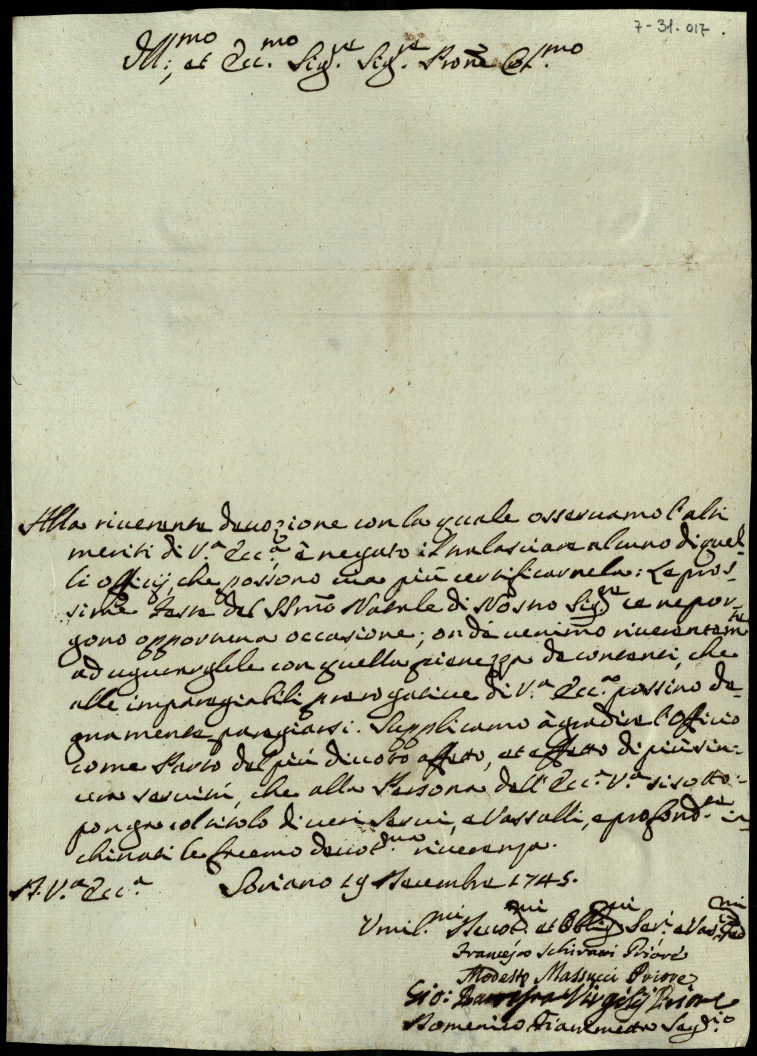 7-31.017
Ill:mo, et Ecc.mo Sig.re Sig.re Prone Col.mo
Alla riuerente deuozione con la quale osseruamo l'alti
meriti di V.a Ecc.a, è negato il tralasciare alcuno di quel-
li officij, che possono uia più certificarnela: Le pros-
sime feste del SSmo Natale di Nostro Sig.re ce ne por-
gono opportuna occasione; onde uenimo riuerentem.te
ad augurarglele con quella pienezza de contenti, che
alle impareggiabili prerogatiue di V.a Ecc.a possino de-
gnamente paregiarsi. Supplicamo à gradire l'Officio
come Parto del più diuoto affetto, et effetto di più sin-
cera seruitù, che alla Persona dell'Ecc.a V.a si sotto-
pongra col titolo di ueri Serui, e Vassalli, e profond.te in-
chinati le facemo deuot.ma riuerenza.
D. V.a Ecc.a Soriano 19 Decembre 1745.
Vmil.mi Deuot.mi et Obblig.mi Ser.i e Vas.
Francesco Schirari Priore
Modesto Massucci Priore
Gio: Virgilij Priore
Domenico Fiammetta Seg.rio